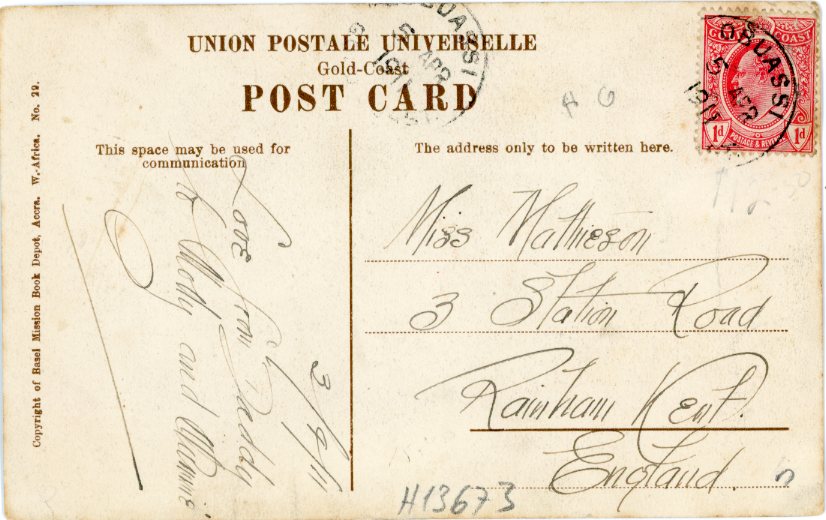 UNION POSTALE UNIVERSELLE
Gold-Coast
POST CARD
This space may be used for
communication
The address only to be written here.
Love from Daddy
to Molly and Mamie
3/4/11
Miss Mathieson
3 Station Road
Rainham Kent.
England.
H13673
Copyright of Basel Mission Book Depot, Accra. W.-Africa. No. 29.
GOLD COAST
1d 1d
POSTAGE & REVENUE
OBUASSI
5 APR
1911
OBUASSI
5 APR
1911